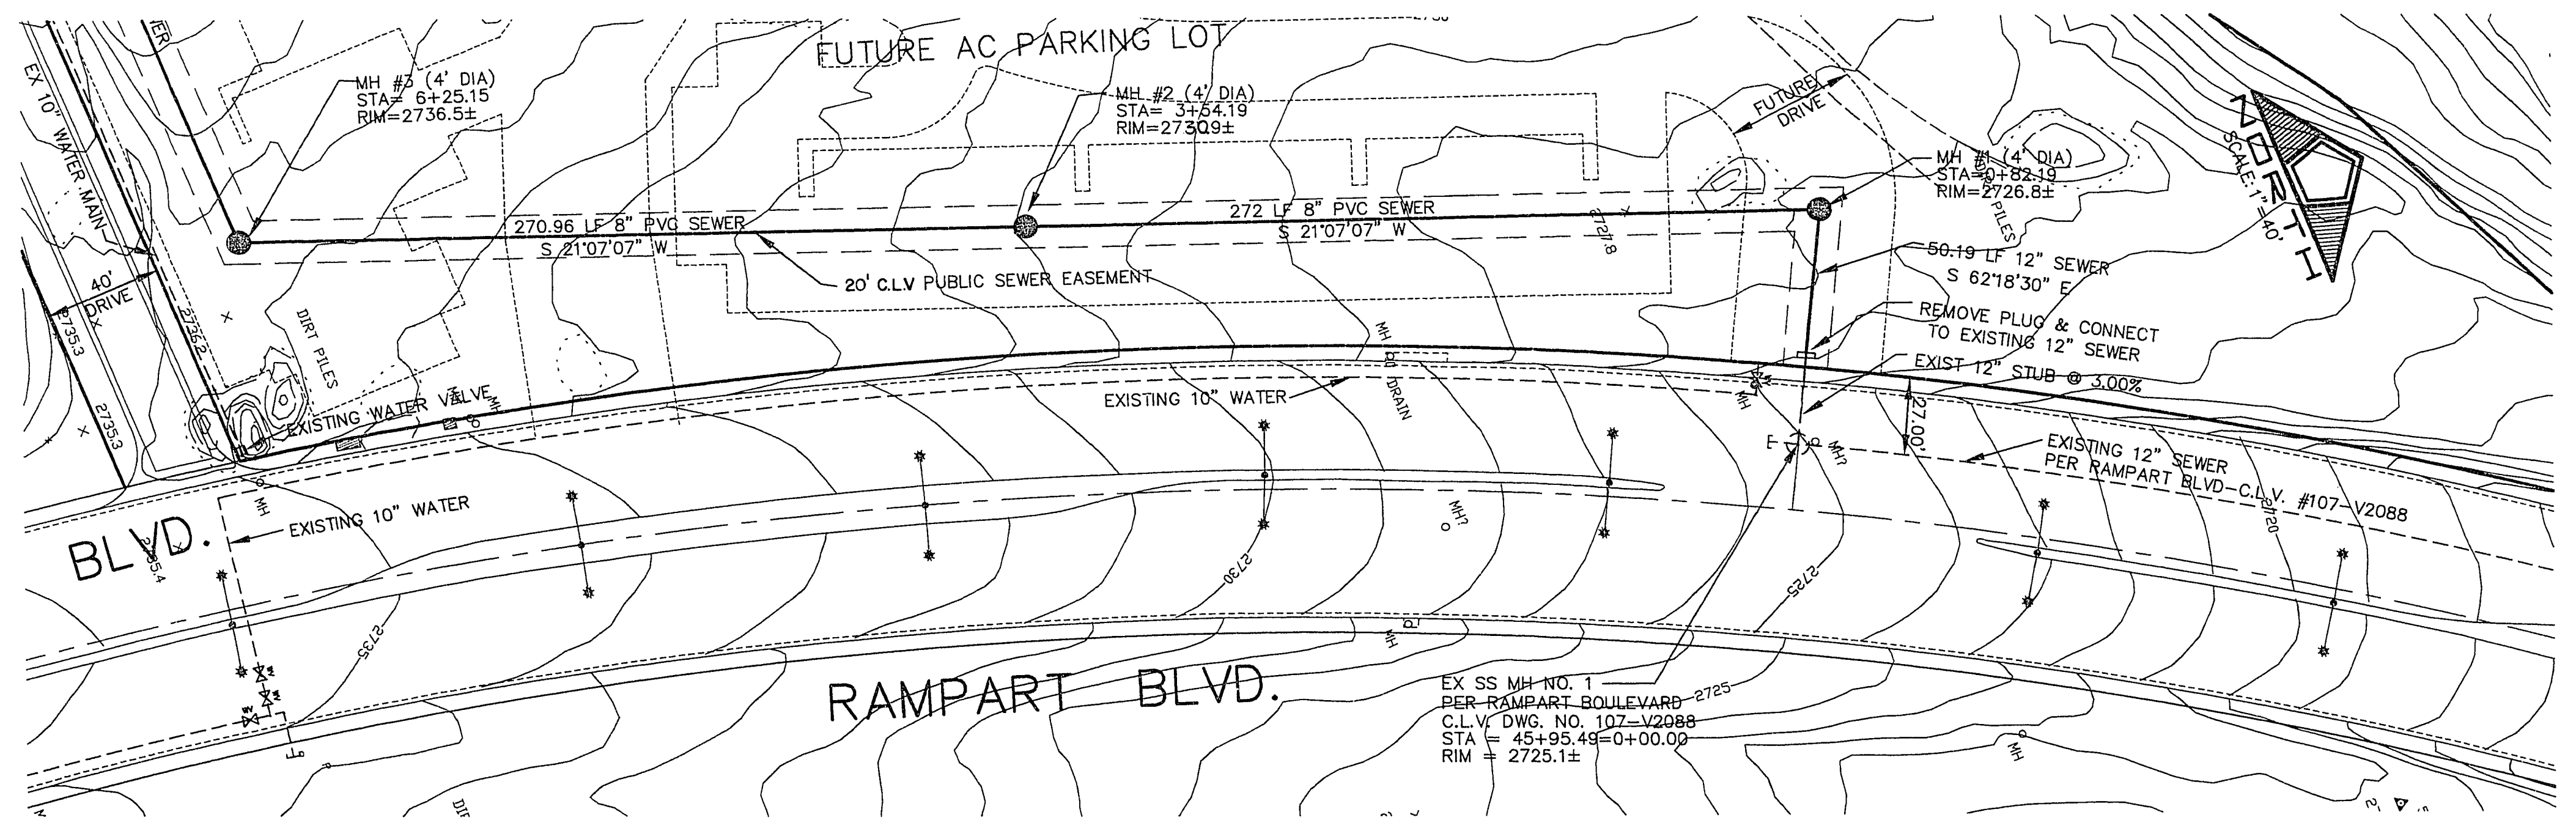 FUTURE AC PARKING LOT
EX 10" WATER MAIN
ER
MH #3 (4' DIA)
STA= 6+25.15
RIM=2736.5±
MH #2 (4' DIA)
STA= 3+54.19
RIM=2730.9±
FUTURE
DRIVE
MH #1 (4' DIA)
STA=0+82.19
RIM=2726.8±
DIRT PILES
NORTH
SCALE: 1"=40'
270.96 LF 8" PVC SEWER
S 21°07'07" W
272 LF 8" PVC SEWER
S 21°07'07" W
2727.8
20' C.L.V PUBLIC SEWER EASEMENT
50.19 LF 12" SEWER
S 62°18'30" E
REMOVE PLUG & CONNECT
TO EXISTING 12" SEWER
EXIST 12" STUB @ 3.00%
40'
DRIVE
2735.3
2736.2
DIRT PILES
2735.3
EXISTING WATER VALVE
MH
MH
DRAIN
EXISTING 10" WATER
MH
27.00'
MH?
EXISTING 12" SEWER
PER RAMPART BLVD-C.L.V. #107-V2088
2720
MH
EXISTING 10" WATER
BLVD.
2735.4
MH?
2730
2725
2735
MH
RAMPART BLVD.
EX SS MH NO. 1
PER RAMPART BOULEVARD
C.L.V. DWG. NO. 107-V2088
STA = 45+95.49=0+00.00
RIM = 2725.1±
2725
MH